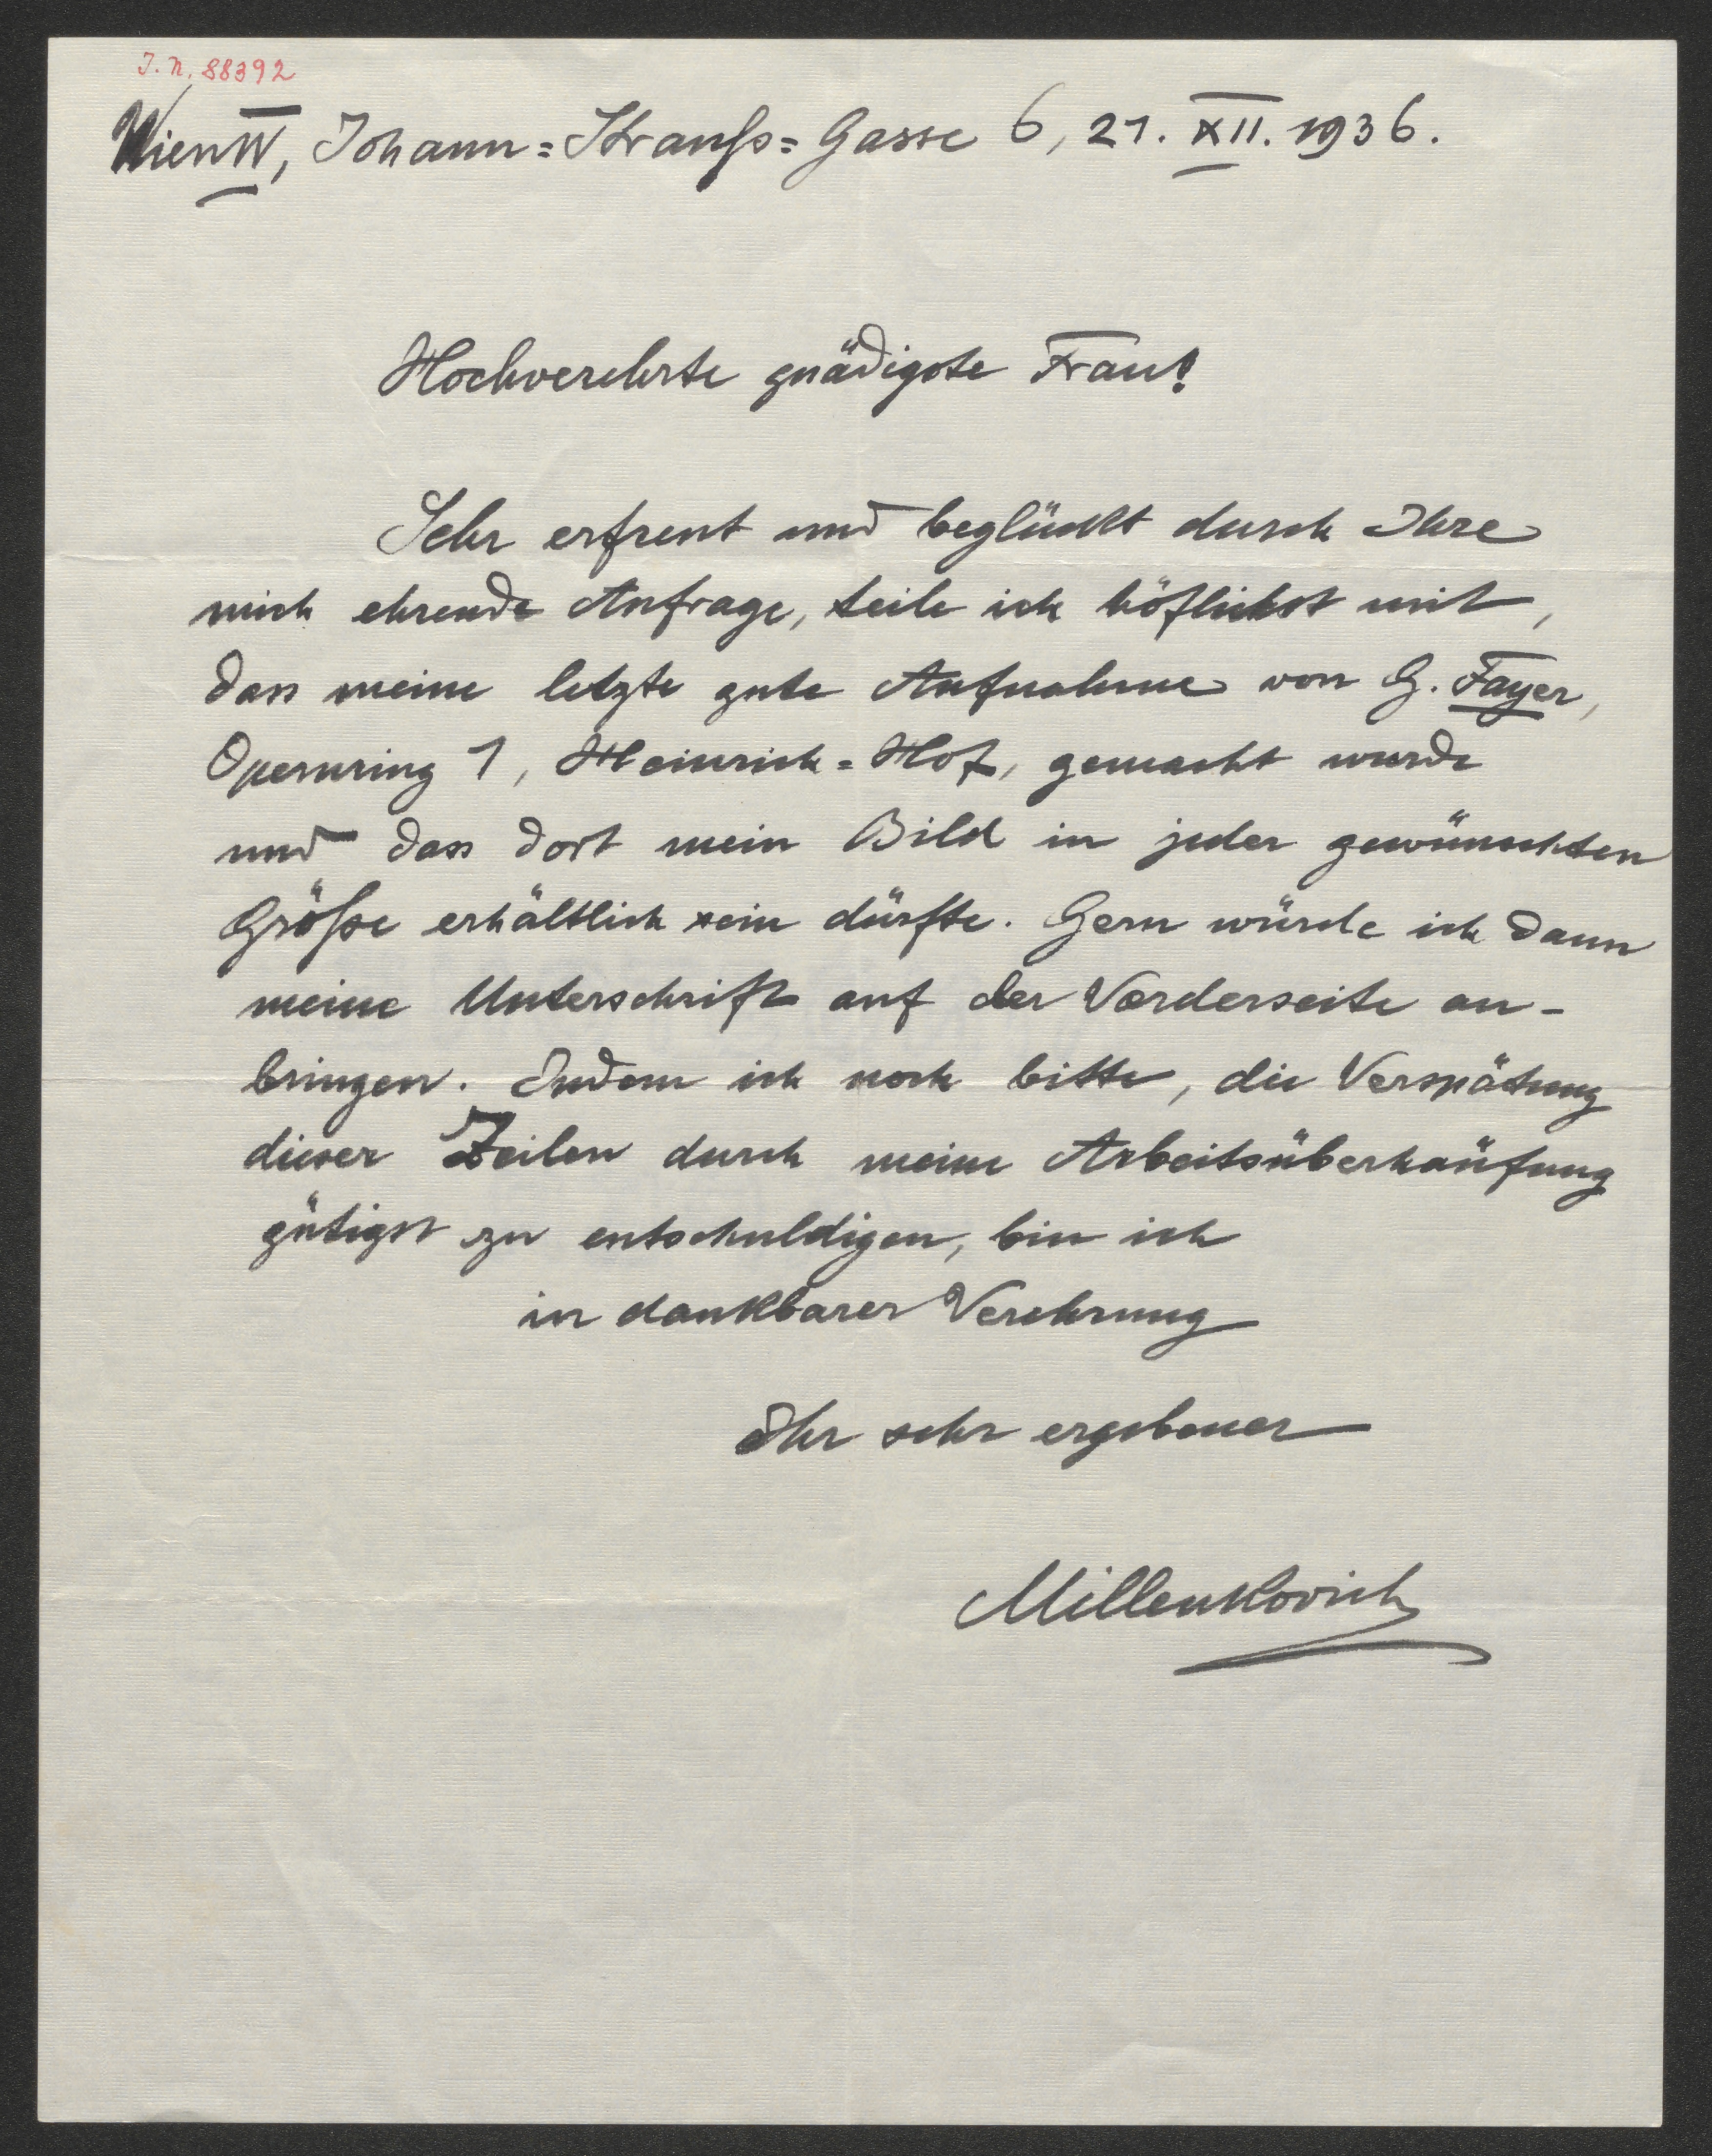 J. N. 88392
Wien IV, Johann=Strauß=Gasse 6, 21. XII. 1936.
Hochverehrte gnädigste Frau!
Sehr erfreut und beglückt durch Ihre
mich ehrende Anfrage, teile ich höflichst mit,
dass meine letzte gute Aufnahme von G. Fayer,
Opernring 1, Heinrich=Hof, gemacht wurde
und dass dort mein Bild in jeder gewünschten
Größe erhältlich sein dürfte. Gern würde ich dann
meine Unterschrift auf der Vorderseite an-
bringen. Indem ich noch bitte, die Verspätung
dieser Zeilen durch meine Arbeitsüberhäufung
gütigst zu entschuldigen, bin ich
in dankbarer Verehrung
Ihr sehr ergebener
Millenkovich